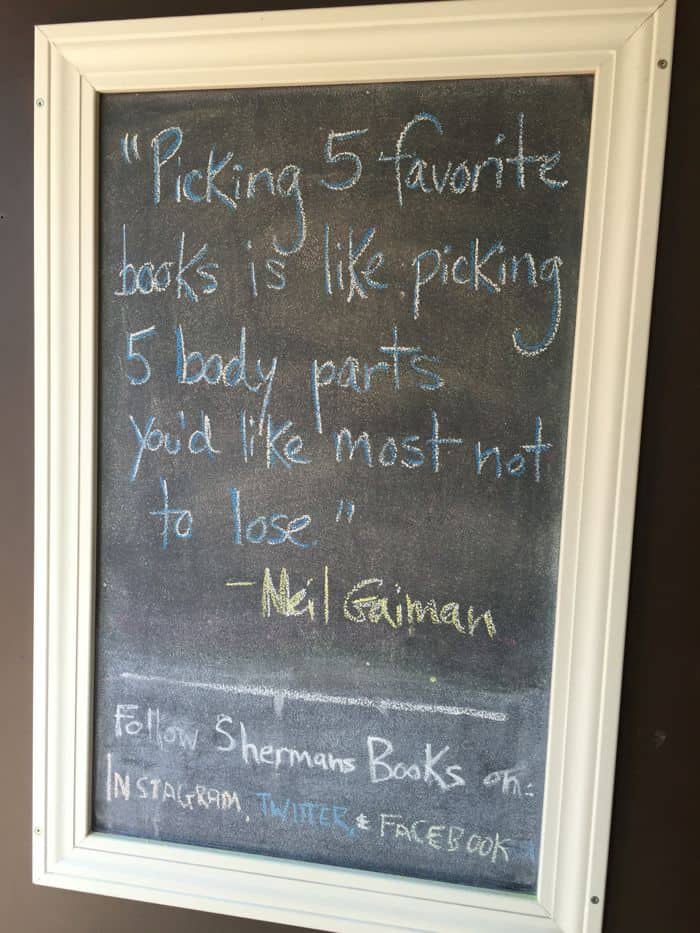 "Picking 5 favorite
books is like picking
5 body parts
you'd like most not
to lose."
- Neil Gaiman
Follow Shermans Books on:
INSTAGRAM, TWITTER, & FACEBOOK